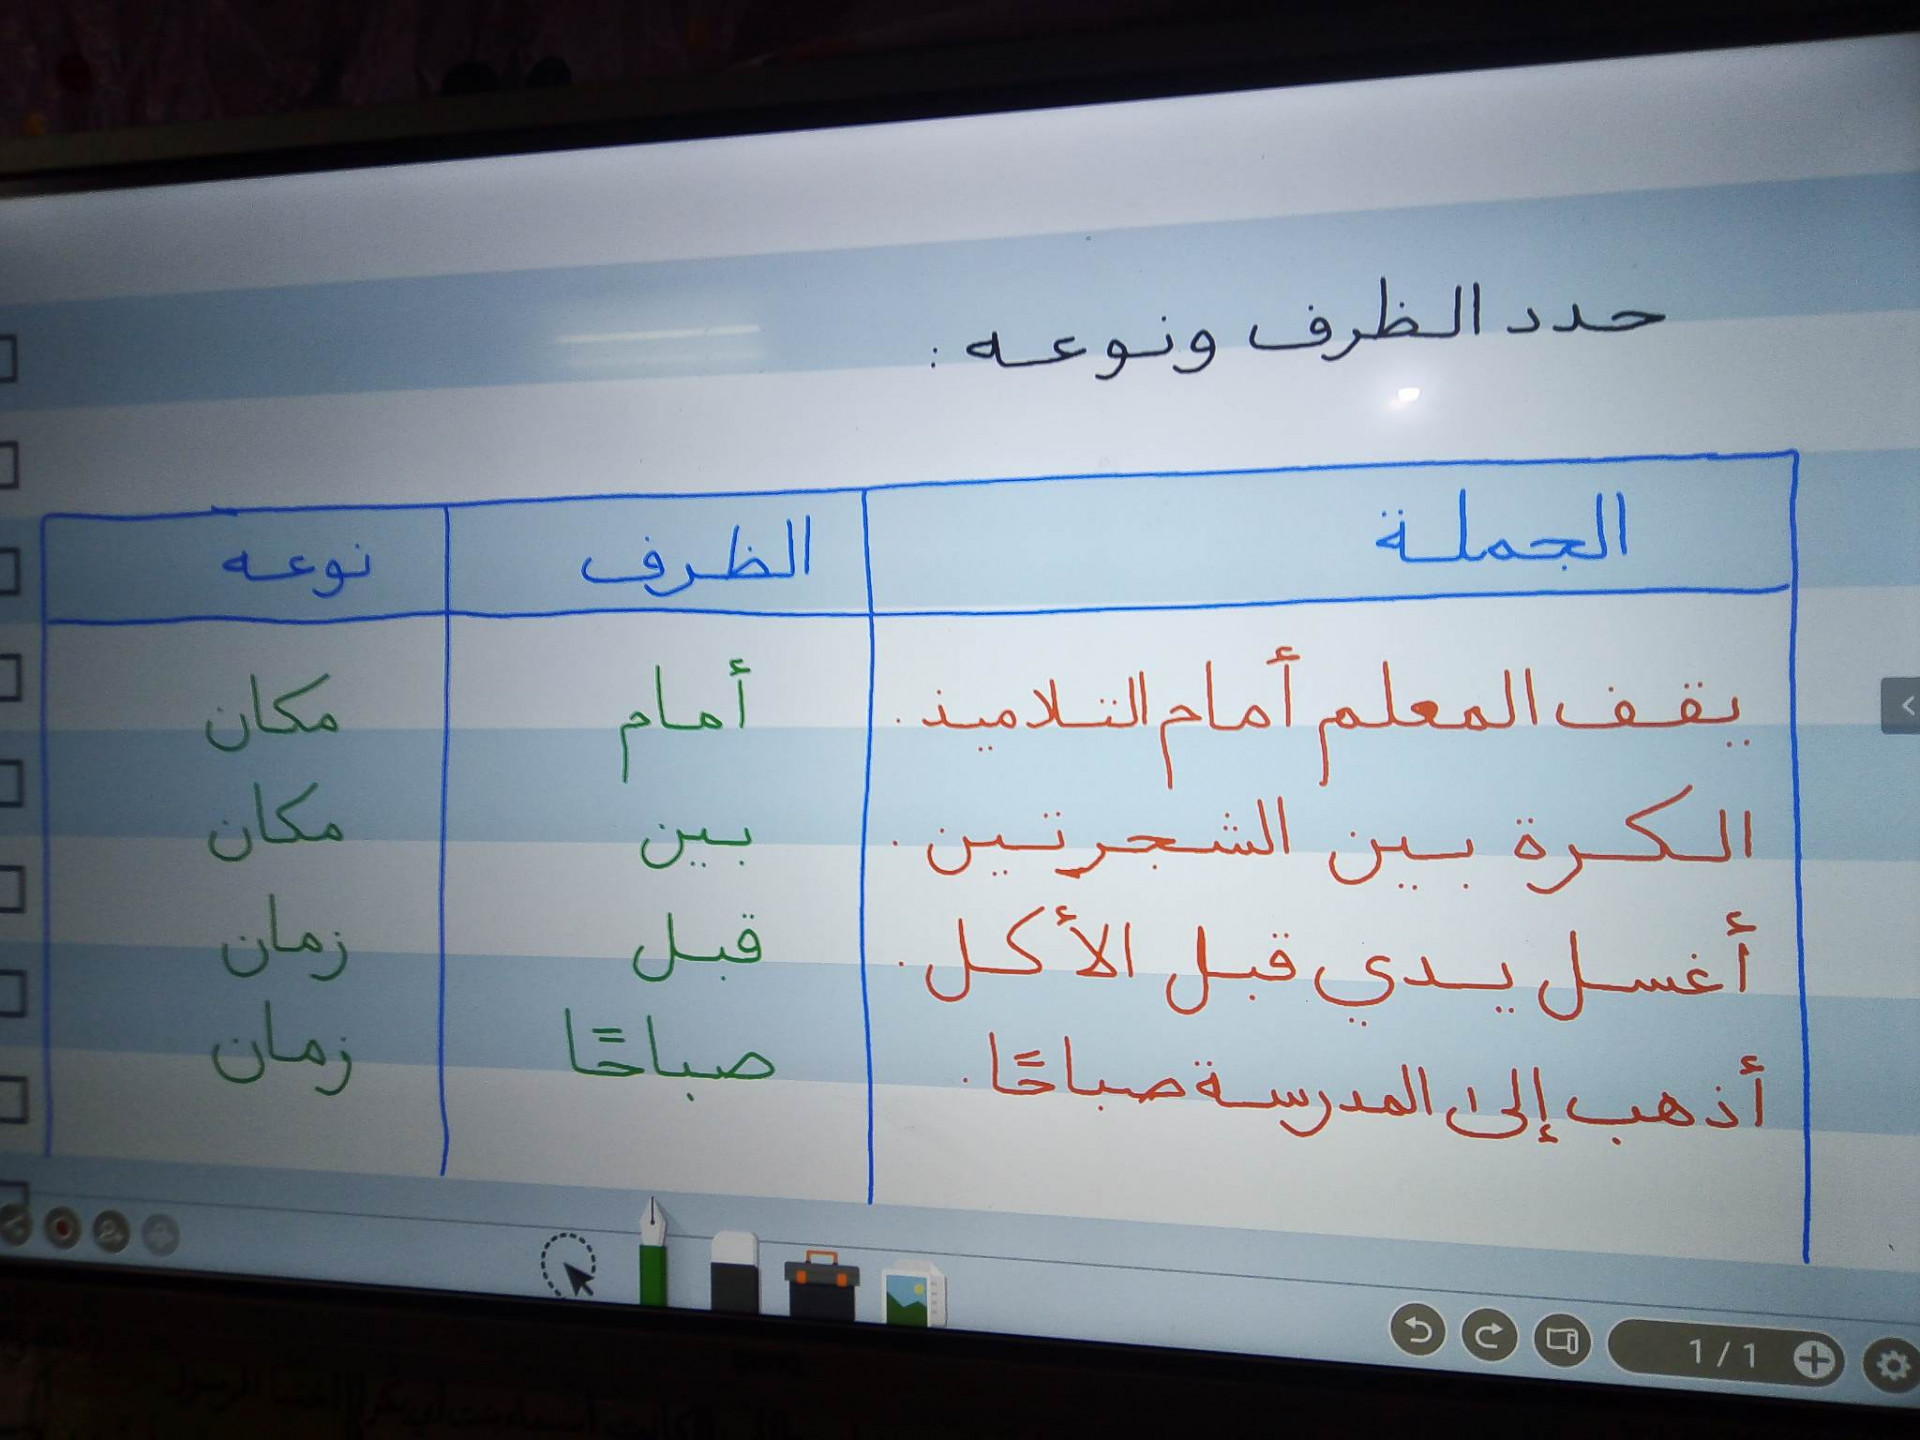 حدد الظرف ونوعه :
الجملة الظرف نوعه
يقف المعلم أمام التلاميذ . أمام مكان
الكرة بين الشجرتين . بين مكان
أغسل يدي قبل الأكل . قبل زمان
أذهب إلى المدرسة صباحًا . صباحًا زمان
1/1